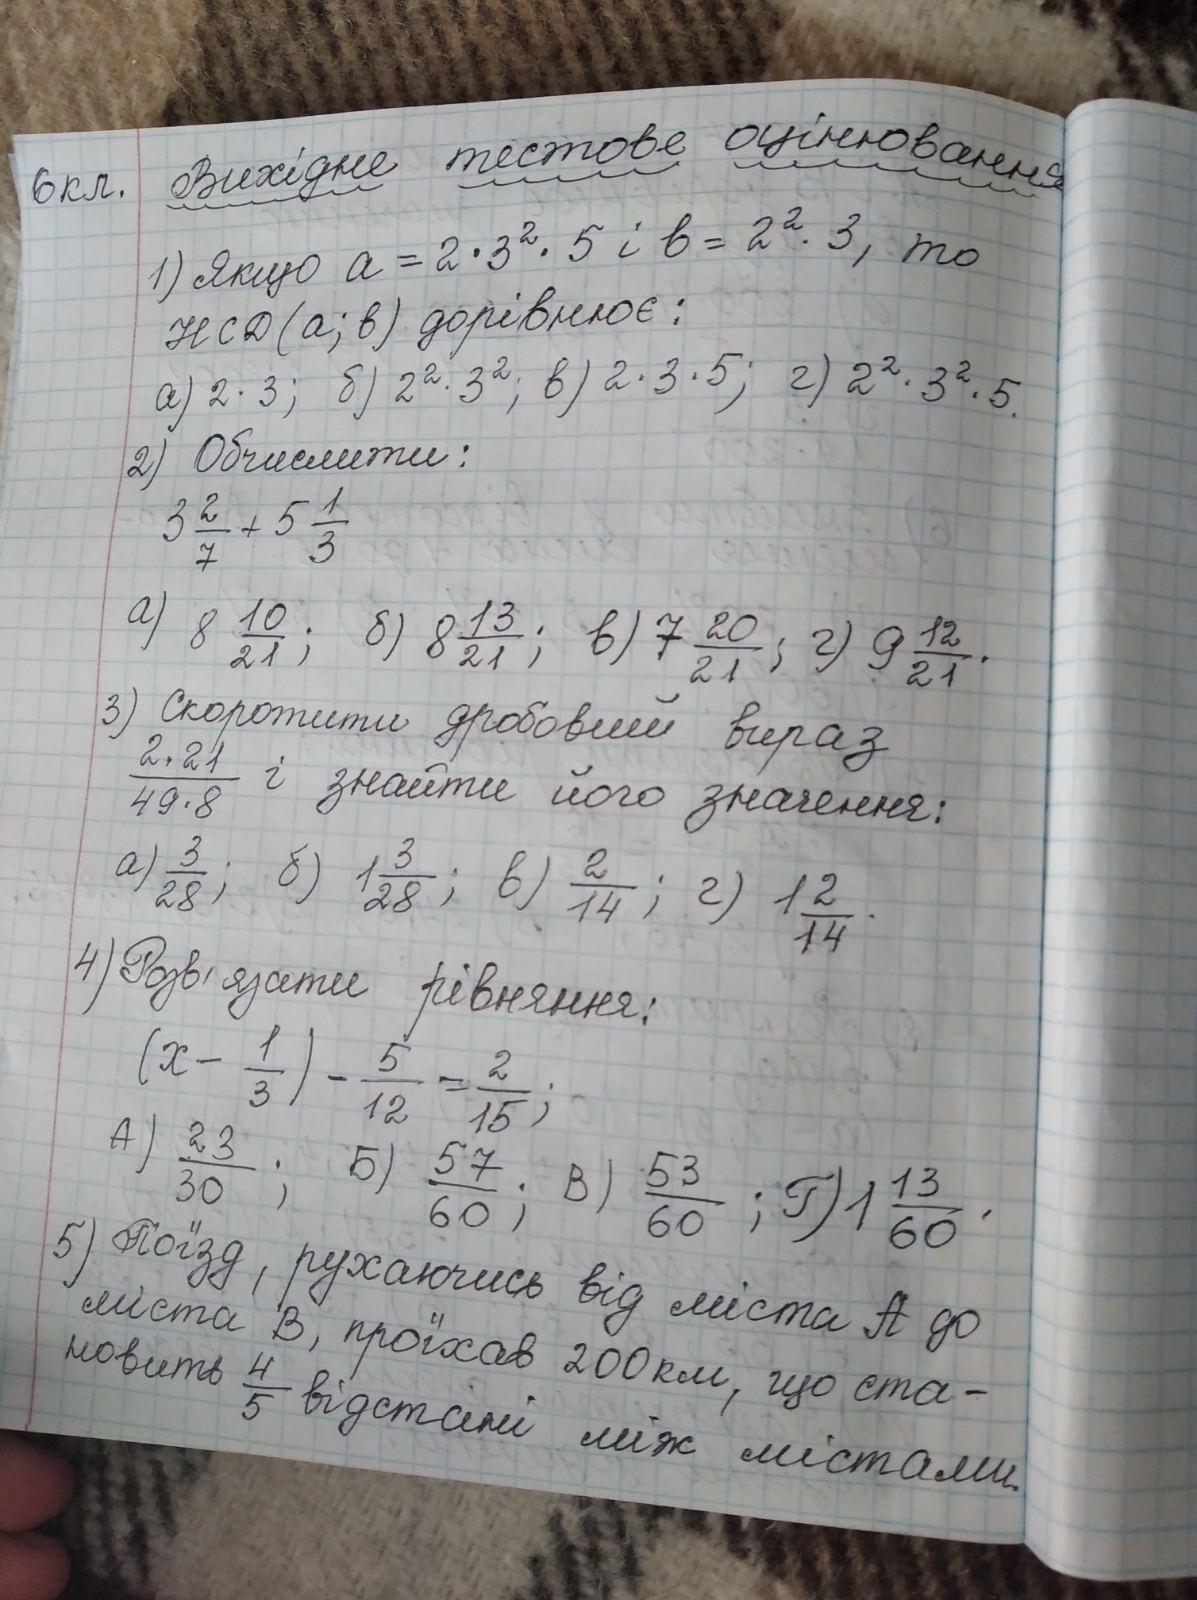 6кл. Вихідне тестове оцінювання
1) Якщо a = 2·3²·5 і b = 2²·3, то
НСД(a; b) дорівнює:
а) 2·3; б) 2²·3²; в) 2·3·5; г) 2²·3²·5.
2) Обчислити:
3 2/7 + 5 1/3
а) 8 10/21; б) 8 13/21; в) 7 20/21; г) 9 12/21.
3) Скоротити дробовий вираз
2·21/49·8 і знайти його значення:
а) 3/28; б) 1 3/28; в) 2/14; г) 1 2/14.
4) Розв'язати рівняння:
(x - 1/3) - 5/12 = 2/15;
А) 23/30; Б) 57/60; В) 53/60; Г) 1 13/60.
5) Поїзд, рухаючись від міста А до
міста В, проїхав 200км, що ста-
новить 4/5 відстані між містами.